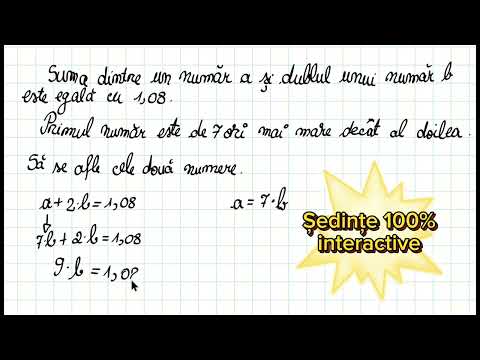 Suma dintre un număr a și dublul unui număr b
este egală cu 1,08.
Primul număr este de 7 ori mai mare decât al doilea.
Să se afle cele două numere.
a + 2·b = 1,08
a = 7·b
7·b + 2·b = 1,08
9·b = 1,08
Ședințe 100%
interactive